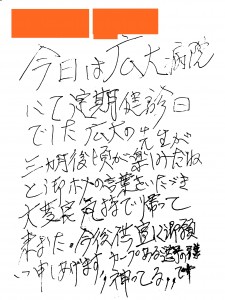 今日は広大病院
にて定期健診日
でした広大の先生が
三カ月後頃が楽しみだね
とのお言葉をいただき
大変良い気持で帰って
来ました。今後供宜しく御願
い申しあげます
神ってる